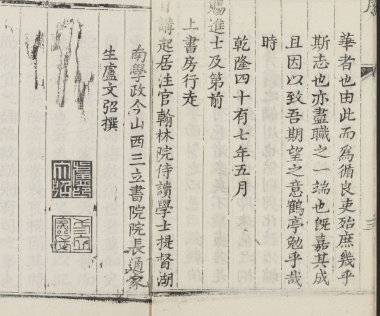 華者也由此而為循良吏殆庶幾乎
斯志也亦盡職之一端也既嘉其成
且因以致吾期望之意鶴亭勉乎哉
時
乾隆四十有七年五月
賜進士及第前
上書房行走
講起居注官翰林院侍讀學士提督湖
南學政今山西三立書院院長通家
生盧文弨撰